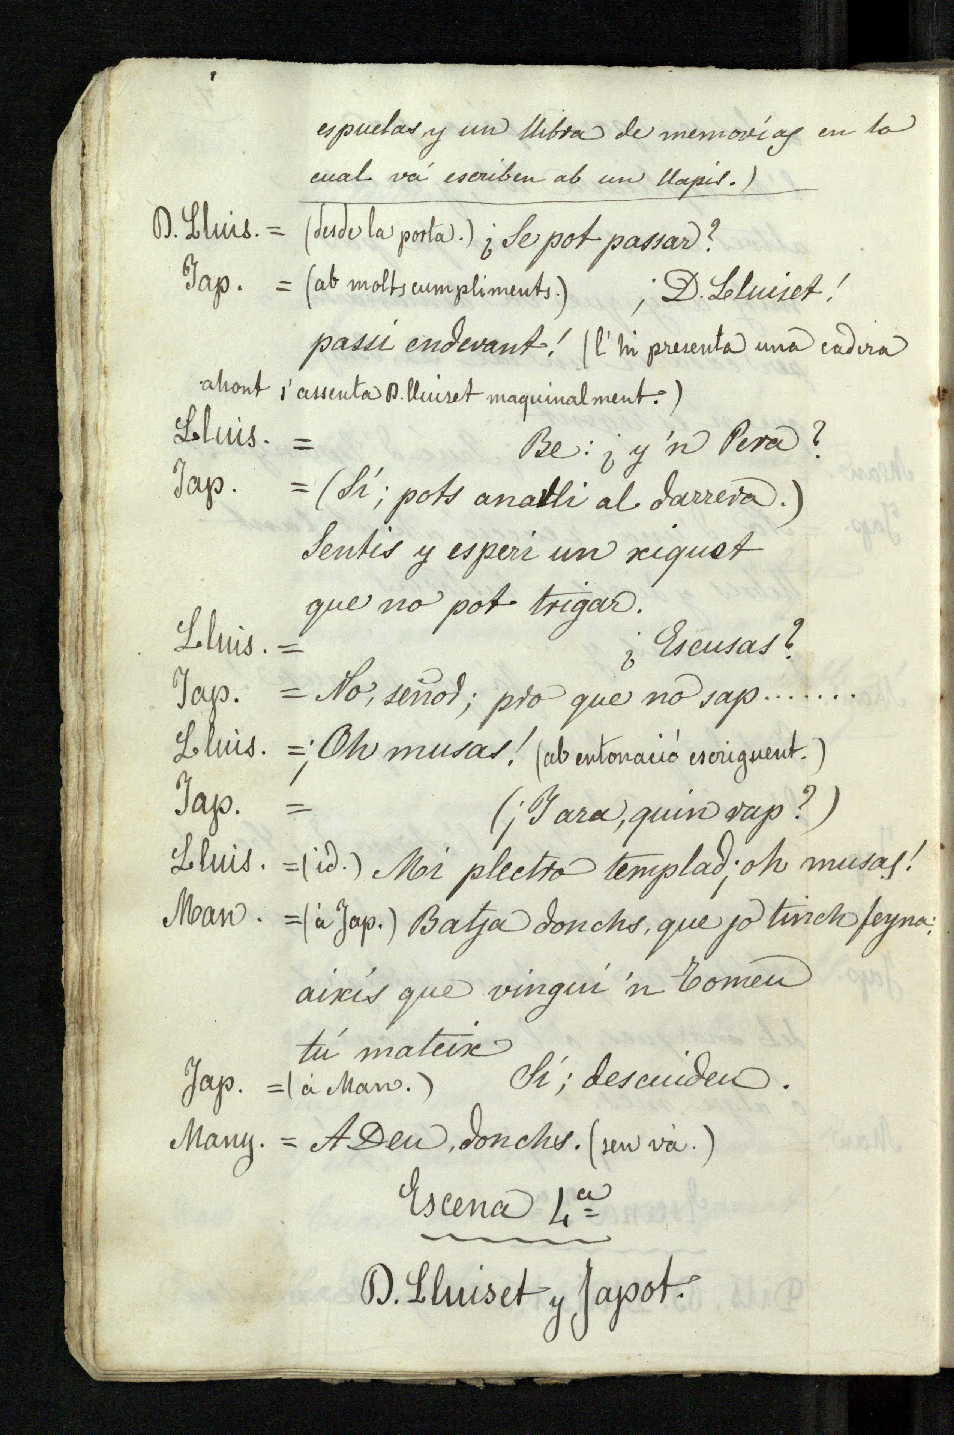 espuelas y un llibra de memorias en lo
cual vá escriben ab un llapis.)
D. Lluis. = (desde la porta.) ¿Se pot passar?
Jap. = (ab molts cumpliments.) ¡D. Lluiset!
passi endevant! (l'hi presenta una cadira
ahont s'assenta D. lluiset maquinalment.)
Lluis. = Be: ¿y 'n Pera?
Jap. = (Sí; pots anarli al darrera.)
Sentis y esperi un xiquet
que no pot trigar.
Lluis. = ¿Escusas?
Jap. = No, señor; pro que no sap.......
Lluis. = ¡Oh musas! (ab entonació escriguent.)
Jap. = (¡Jara, quin rap?)
Lluis. = (id.) Mi plectro templad; oh musas!
Man. = (á Jap.) Batja donchs, que jo tinch feyna:
aixís que vingui 'n Tomeu
tú mateix
Jap. = (á Man.) Sí; descuideu.
Many. = A Deu, donchs. (sen vá.)
Escena 4.ª
D. Lluiset y Japot.